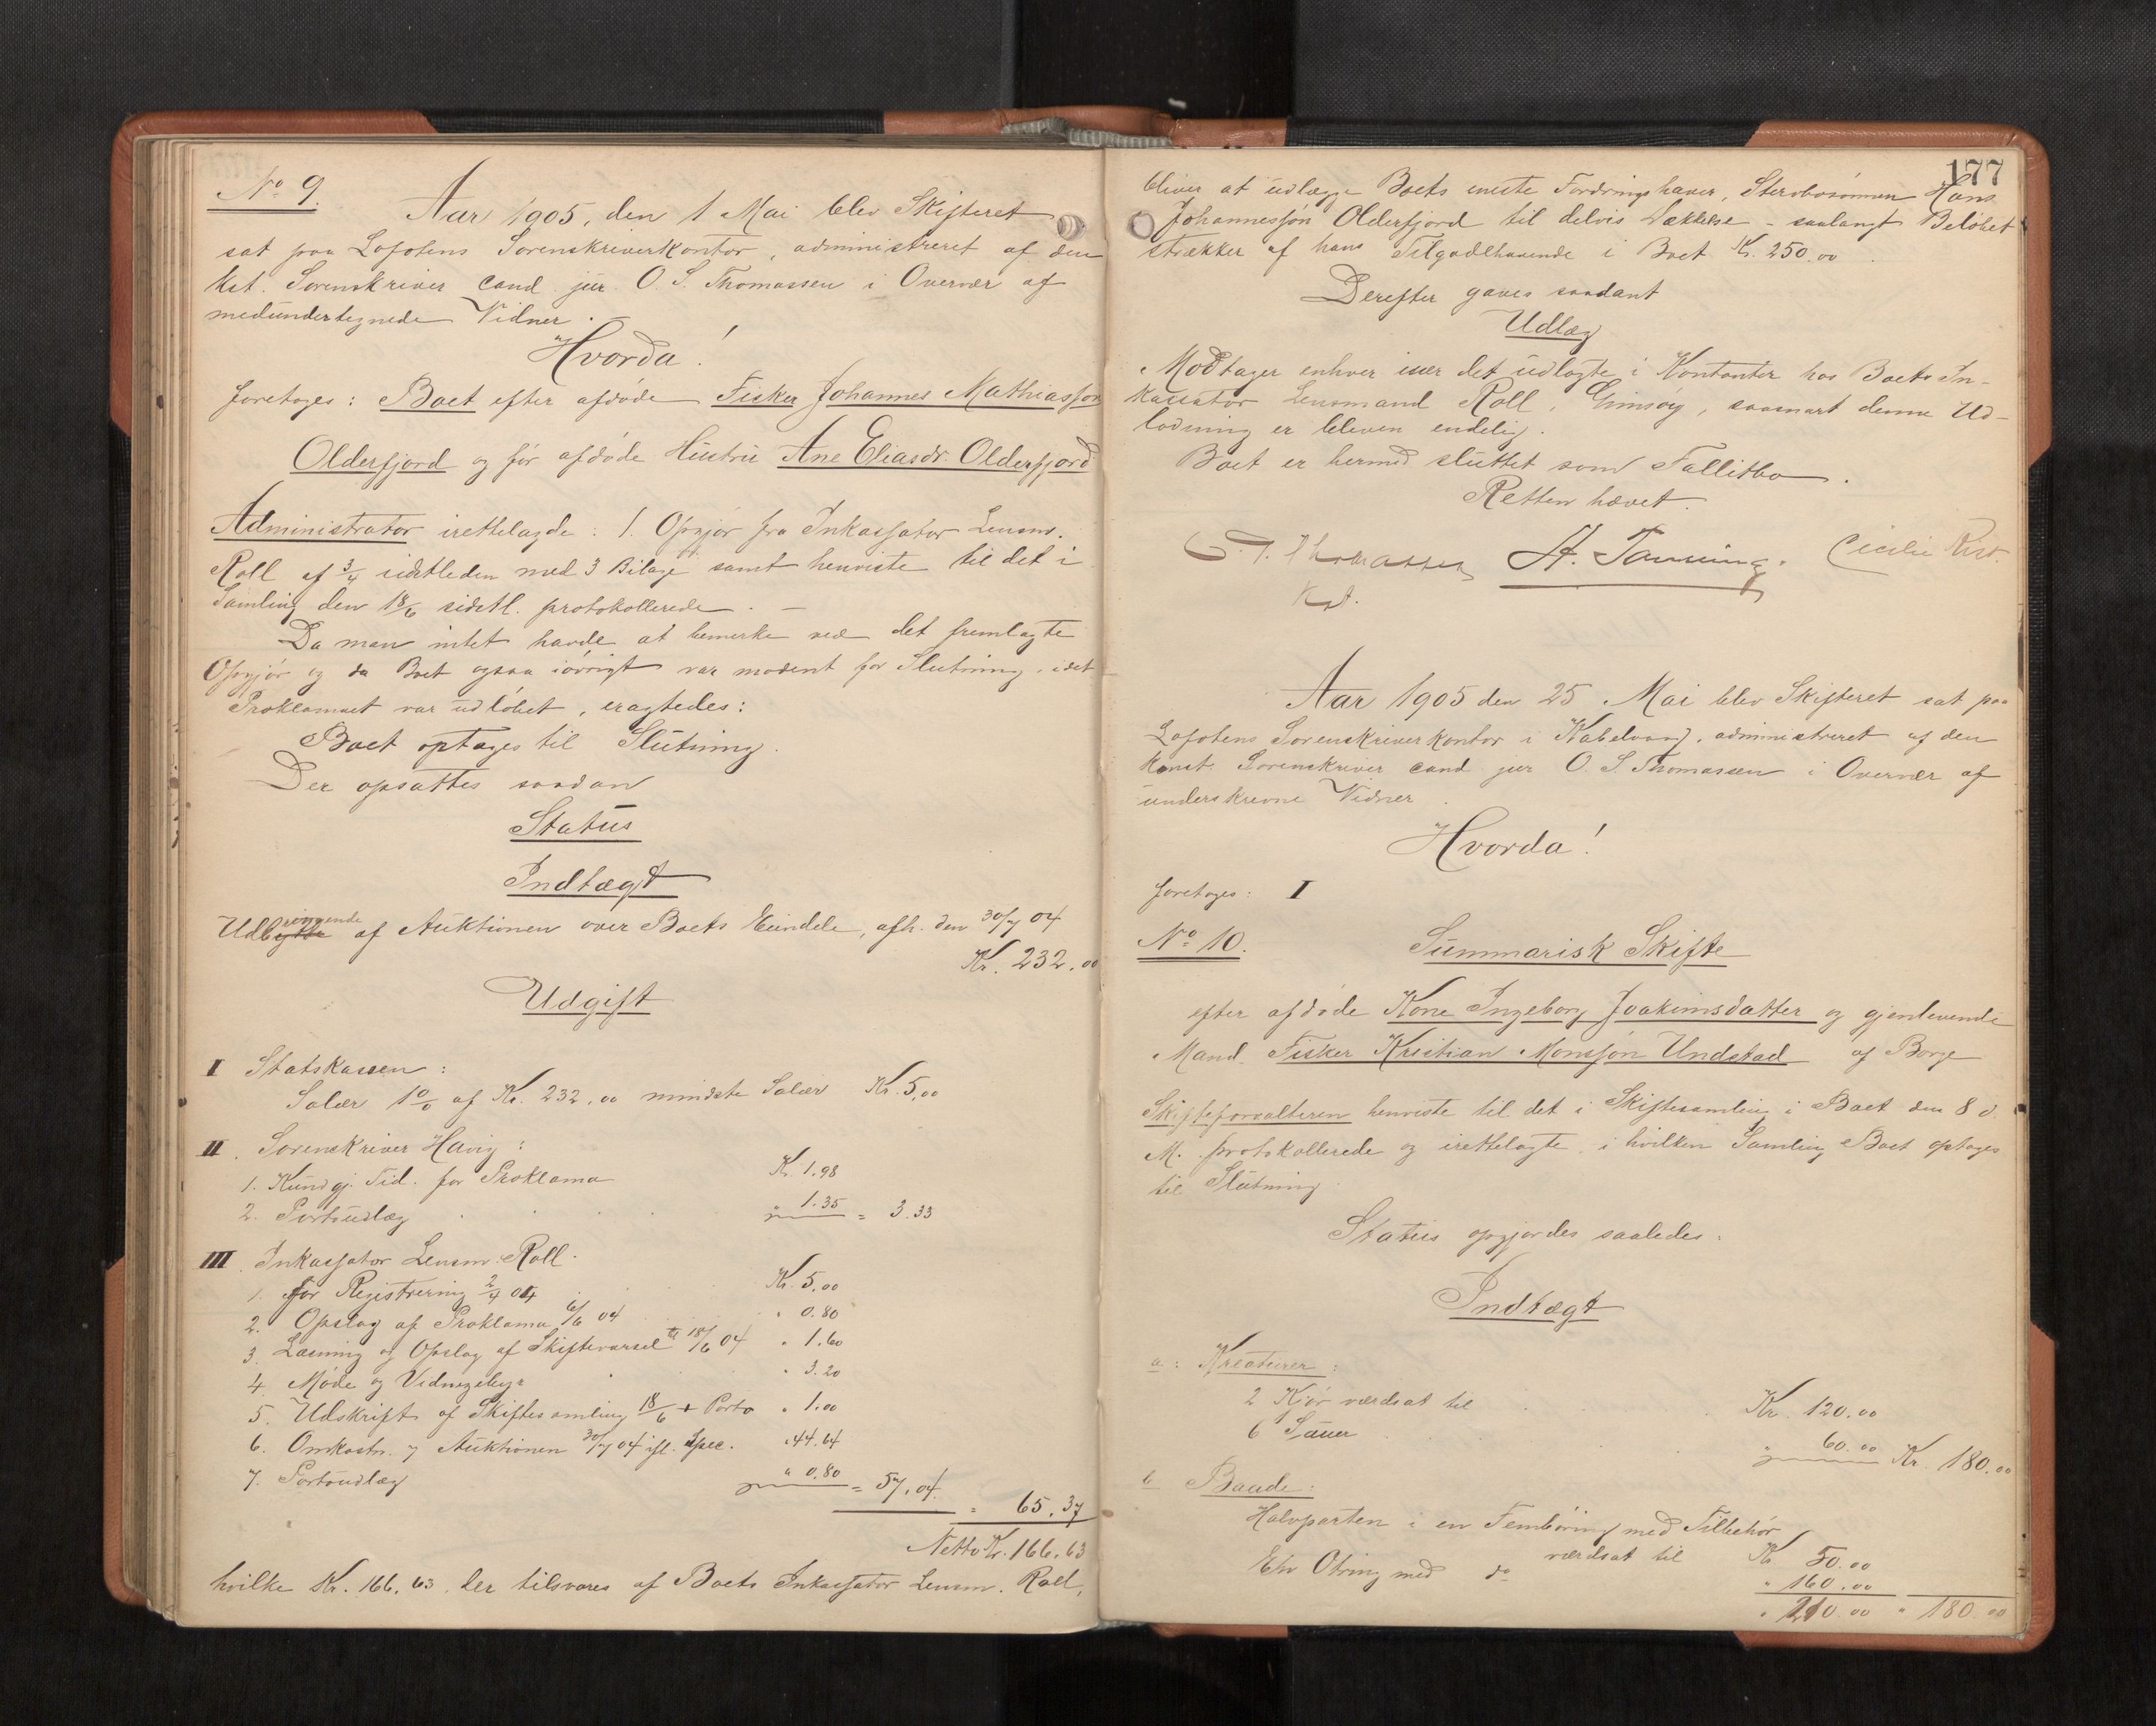 No 9.
Aar 1905, den 1 Mai blev Skifteret
sat paa Lofotens Sorenskriverkontor, administreret af den
kst. Sorenskriver cand. jur. O. S. Thomassen i Overvær af
medundertegnede Vidner. –
Hvorda!
foretoges: Boet efter afdøde Fisker Johannes Mathiassøn
Olderfjord og før afdøde Hustru Ane Eliasdr. Olderfjord
Administrator irettelagde: 1. Opgjør fra Inkassator Lensm.
Roll af 3/4 sidstleden med 3 Bilage samt henviste til det i
Samling den 18/6 sidstl. protokollerede. –
Da man intet havde at bemerke ved det fremlagte
Opgjør og da Boet ogsaa iøvrigt var modent for Slutning, idet
Proklamaet var udløbet, eragtedes:
Boet optages til Slutning.
Der opsattes saadan
Status
Indtægt
Udbringende af Auktionen over Boets Eiendele, afh. den 30/7 04
Kr. 232.00
Udgift
I Statskassen:
Salær 1 0/0 af Kr. 232.00 mindste Salær Kr. 5.00
II. Sorenskriver Havig:
1. Kundgj. Tid. for Proklama Kr. 1.98
2. Portoudlæg " 1.35 = 3.33
III. Inkassator Lensm. Roll.
1. For Registrering 2/4 04 Kr. 5.00
2. Opslag af Proklama 6/6 04 " 0.80
3. Læsning og Opslag af Skiftevarsel til 18/6 04 " 1.60
4. Møde og Vidnegebyr " 3.20
5. Udskrift af Skiftesamling 18/6 + Porto " 1.00
6. Omkostn. v Auktionen 30/7 04 ifl. Spec. " 44.64
7. Portoudlæg " 0.80 = 57.04
= 65.37
Netto Kr. 166.63
hvilke Kr. 166.63 der tilsvares af Boets Inkassator Lensm. Roll,
177
bliver at udlægge Boets eneste Fordringshaver, Stervbosønnen Hans
Johannessøn Olderfjord til delvis Dækkelse – saalangt Beløbet
strækker af hans Tilgodehavende i Boet Kr. 250.00.
Derefter gaves saadant
Udlæg
Modtager enhver især det udlagte i Kontanter hos Boets In-
kassator Lensmand Roll, Gimsøy, saasnart denne Ud-
lodning er bleven endelig.
Boet er hermed sluttet som Fallitbo.
Retten hævet.
O. S. Thomassen A. Tanning. Cecilie Rist.
Kst.
Aar 1905 den 25 Mai blev Skifteret sat paa
Lofotens Sorenskriverkontor i Kabelvaag, administreret af den
konst. Sorenskriver cand jur O. S. Thomassen i Overvær af
underskrevne Vidner.
Hvorda!
foretoges: I
No 10.
Summarisk Skifte
efter afdøde Kone Ingeborg Joakimsdatter og gjenlevende
Mand. Fisker Kristian Monssøn Undstad af Borge
Skifteforvalteren henviste til det i Skiftesamling i Boet den 8 d.
M. protokollerede og irettelagte, i hvilken Samling Boet optoges
til Slutning.
Status opgjordes saaledes:
Indtægt
a: Kreaturer:
2 Kjør værdsat til Kr. 120.00
6 Sauer " 60.00 Kr. 180.00
b Baade:
Halvparten i en Fembøring med Tilbehør
værdsat til Kr. 50.00
En Otring med do " 160.00
" 210.00 " 180.00